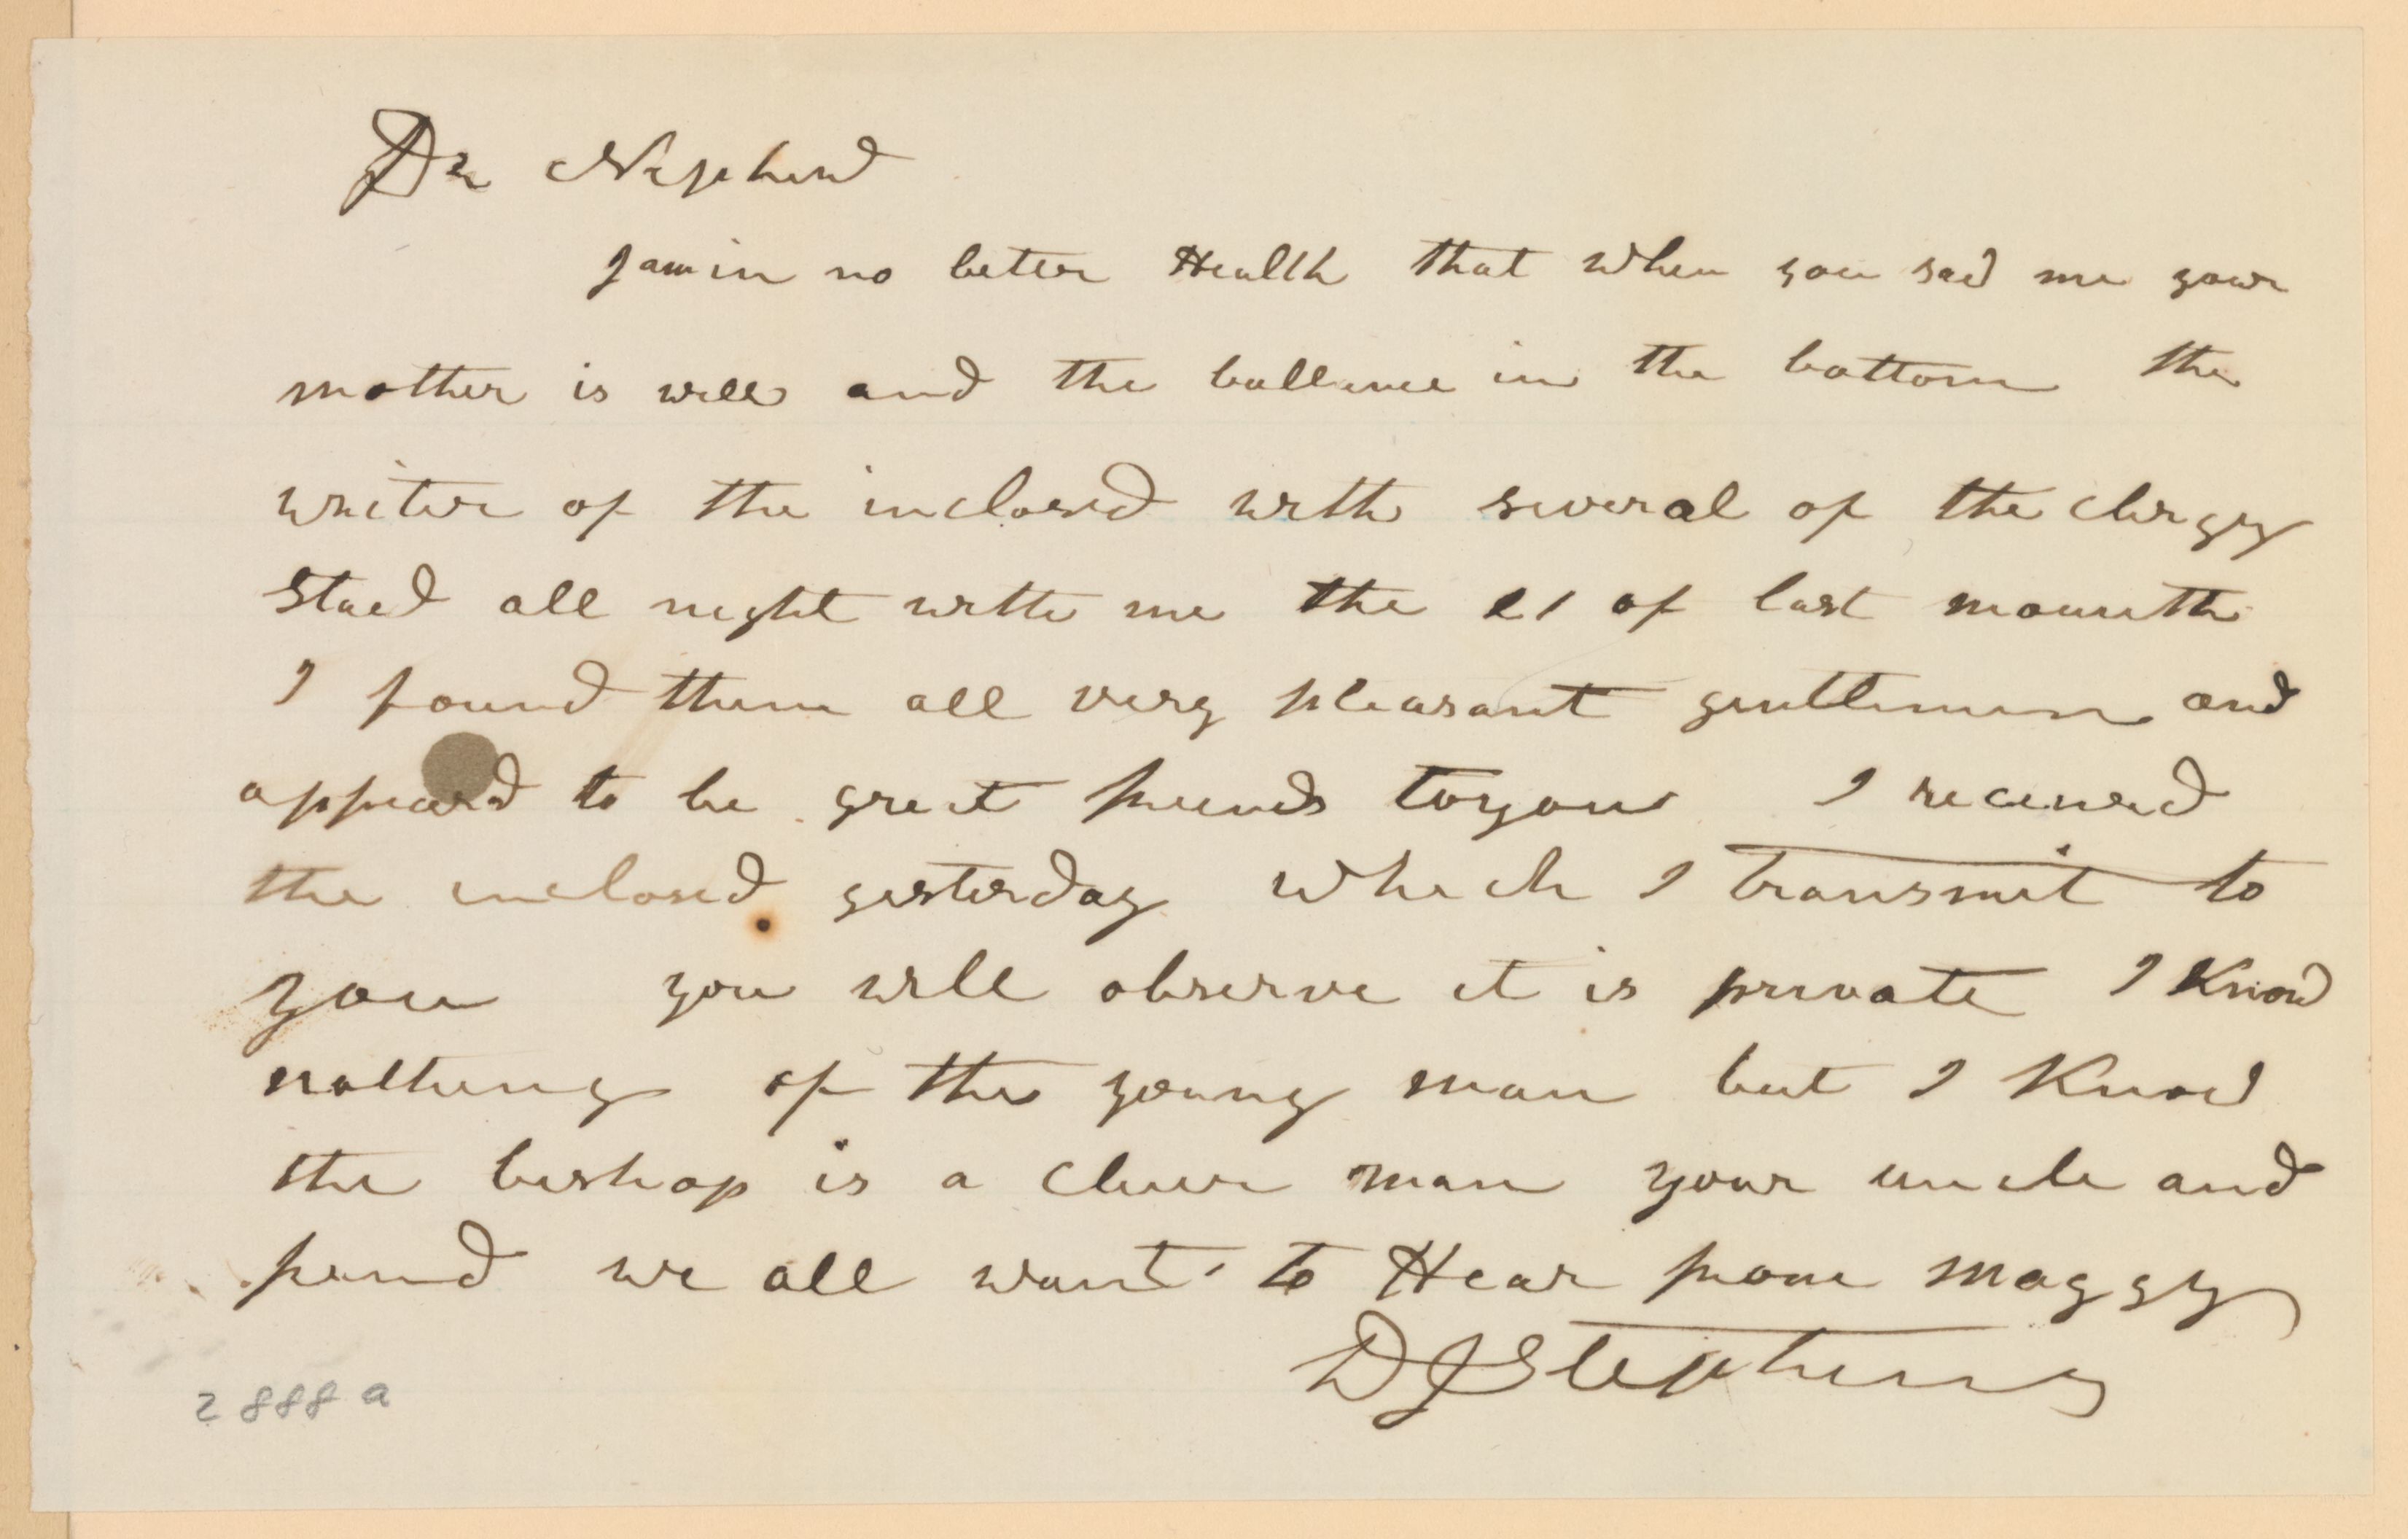 Dr Nephew
I am in no better Health that when you saw me your
mother is well and the ballance in the bottom the
writer of the inclosed with several of the clergy
staed all night with me the 21 of last mounth
I found them all very pleasant gentlemen and
appeard to be great friends to you I received
the inclosed yesterday which I transmit to
you you will observe it is private I Know
nothing of the young man but I Know
the bishop is a clever man your uncle and
frend we all want to Hear from maggy
D J Stephens
2888 a